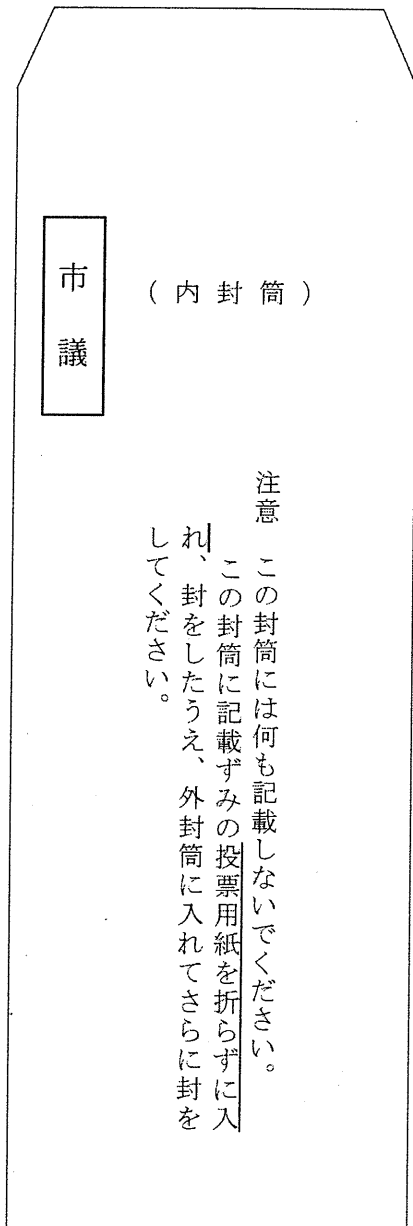 市議
（内封筒）
注意　この封筒には何も記載しないでください。
この封筒に記載ずみの投票用紙を折らずに入
れ、封をしたうえ、外封筒に入れてさらに封を
してください。